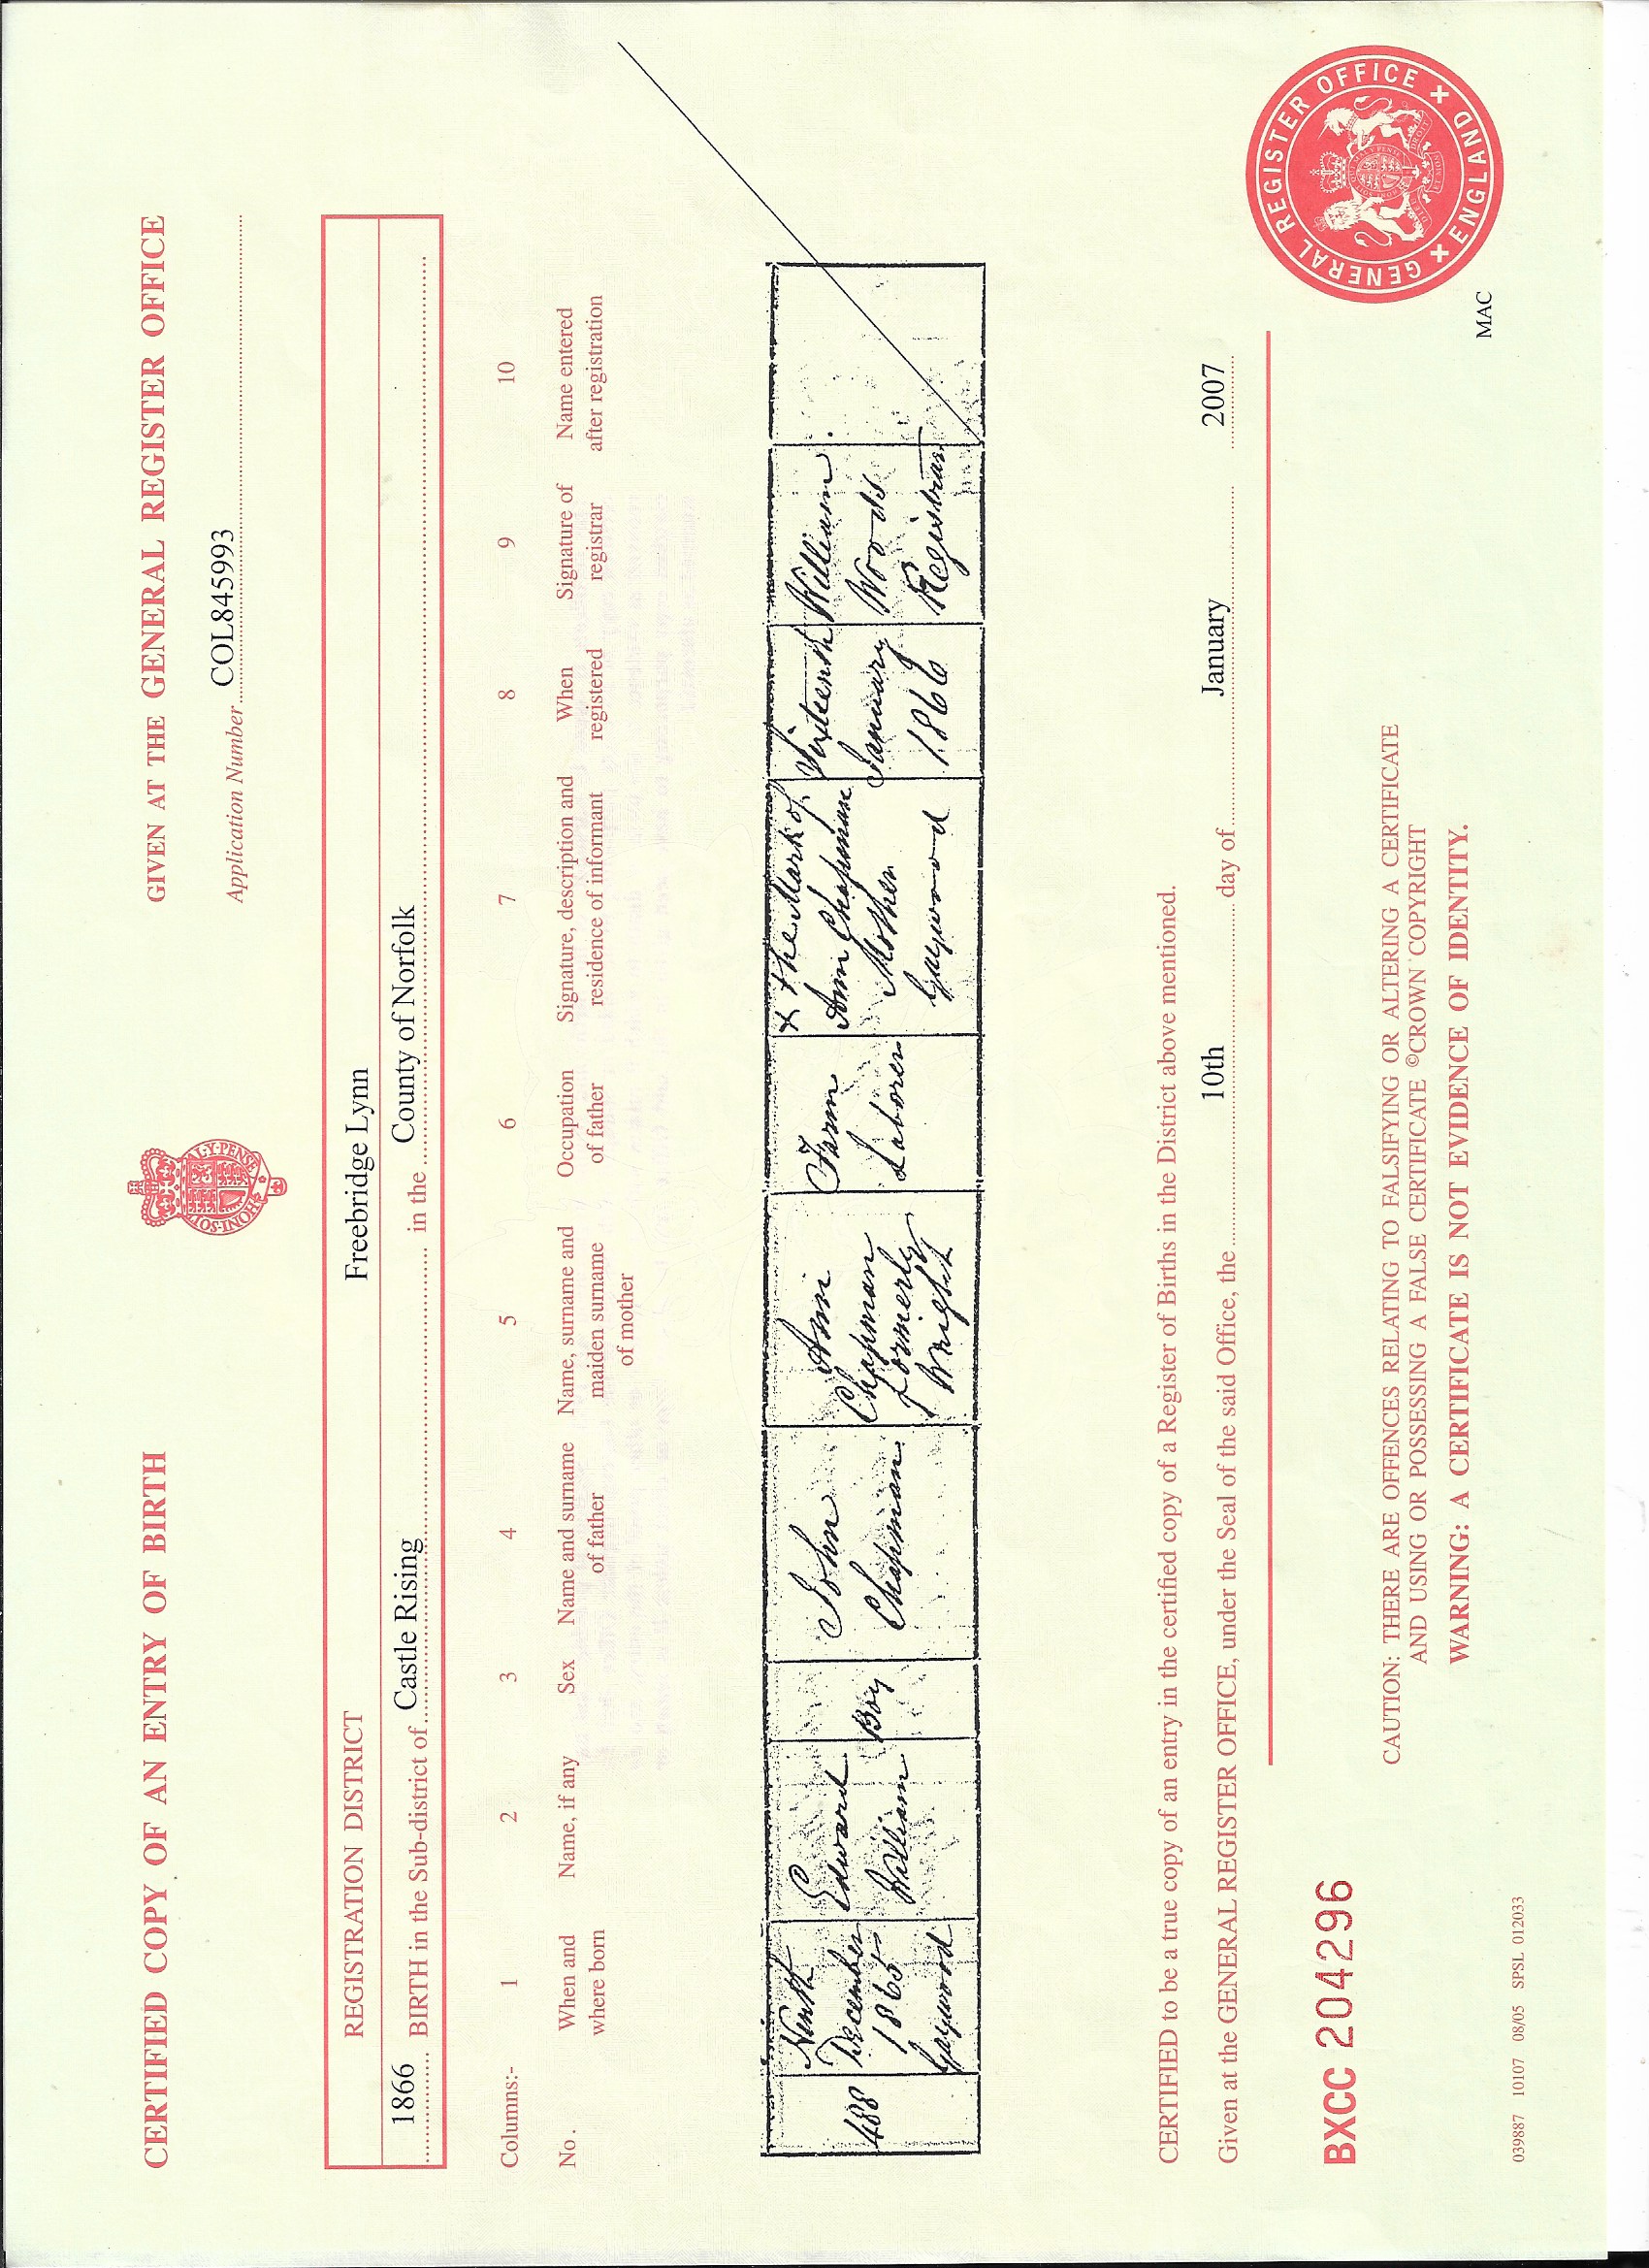 CERTIFIED COPY OF AN ENTRY OF BIRTH
GIVEN AT THE GENERAL REGISTER OFFICE
Application Number COL845993
REGISTRATION DISTRICT Freebridge Lynn
1866 BIRTH in the Sub-district of Castle Rising in the County of Norfolk
Columns:- 1 2 3 4 5 6 7 8 9 10
No.
When and
where born
Name, if any
Sex
Name and surname
of father
Name, surname and
maiden surname
of mother
Occupation
of father
Signature, description and
residence of informant
When
registered
Signature of
registrar
Name entered
after registration
488
Ninth
December
1865
Gaywood
Edward
William
Boy
John
Chapman
Ann
Chapman
formerly
Wright
Farm
Laborer
X The Mark of
Ann Chapman
Mother
Gaywood
Sixteenth
January
1866
William
Woods
Registrar
CERTIFIED to be a true copy of an entry in the certified copy of a Register of Births in the District above mentioned.
Given at the GENERAL REGISTER OFFICE, under the Seal of the said Office, the 10th day of January 2007
BXCC 204296
CAUTION: THERE ARE OFFENCES RELATING TO FALSIFYING OR ALTERING A CERTIFICATE
AND USING OR POSSESSING A FALSE CERTIFICATE ©CROWN COPYRIGHT
WARNING: A CERTIFICATE IS NOT EVIDENCE OF IDENTITY.
039887 10107 08/05 SPSL 012033
MAC
GENERAL REGISTER OFFICE ENGLAND